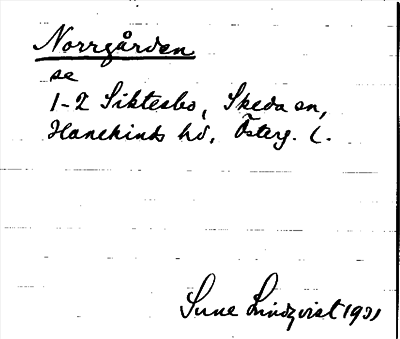 Norrgården
se
1-2 Siktesbo, Skeda sn,
Hanekinds hd, Österg. l.
Sune Lindqvist 1931